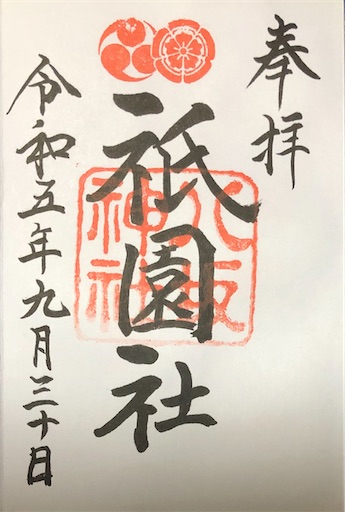 奉拝
祇園社
八坂
神社
令和五年九月三十日